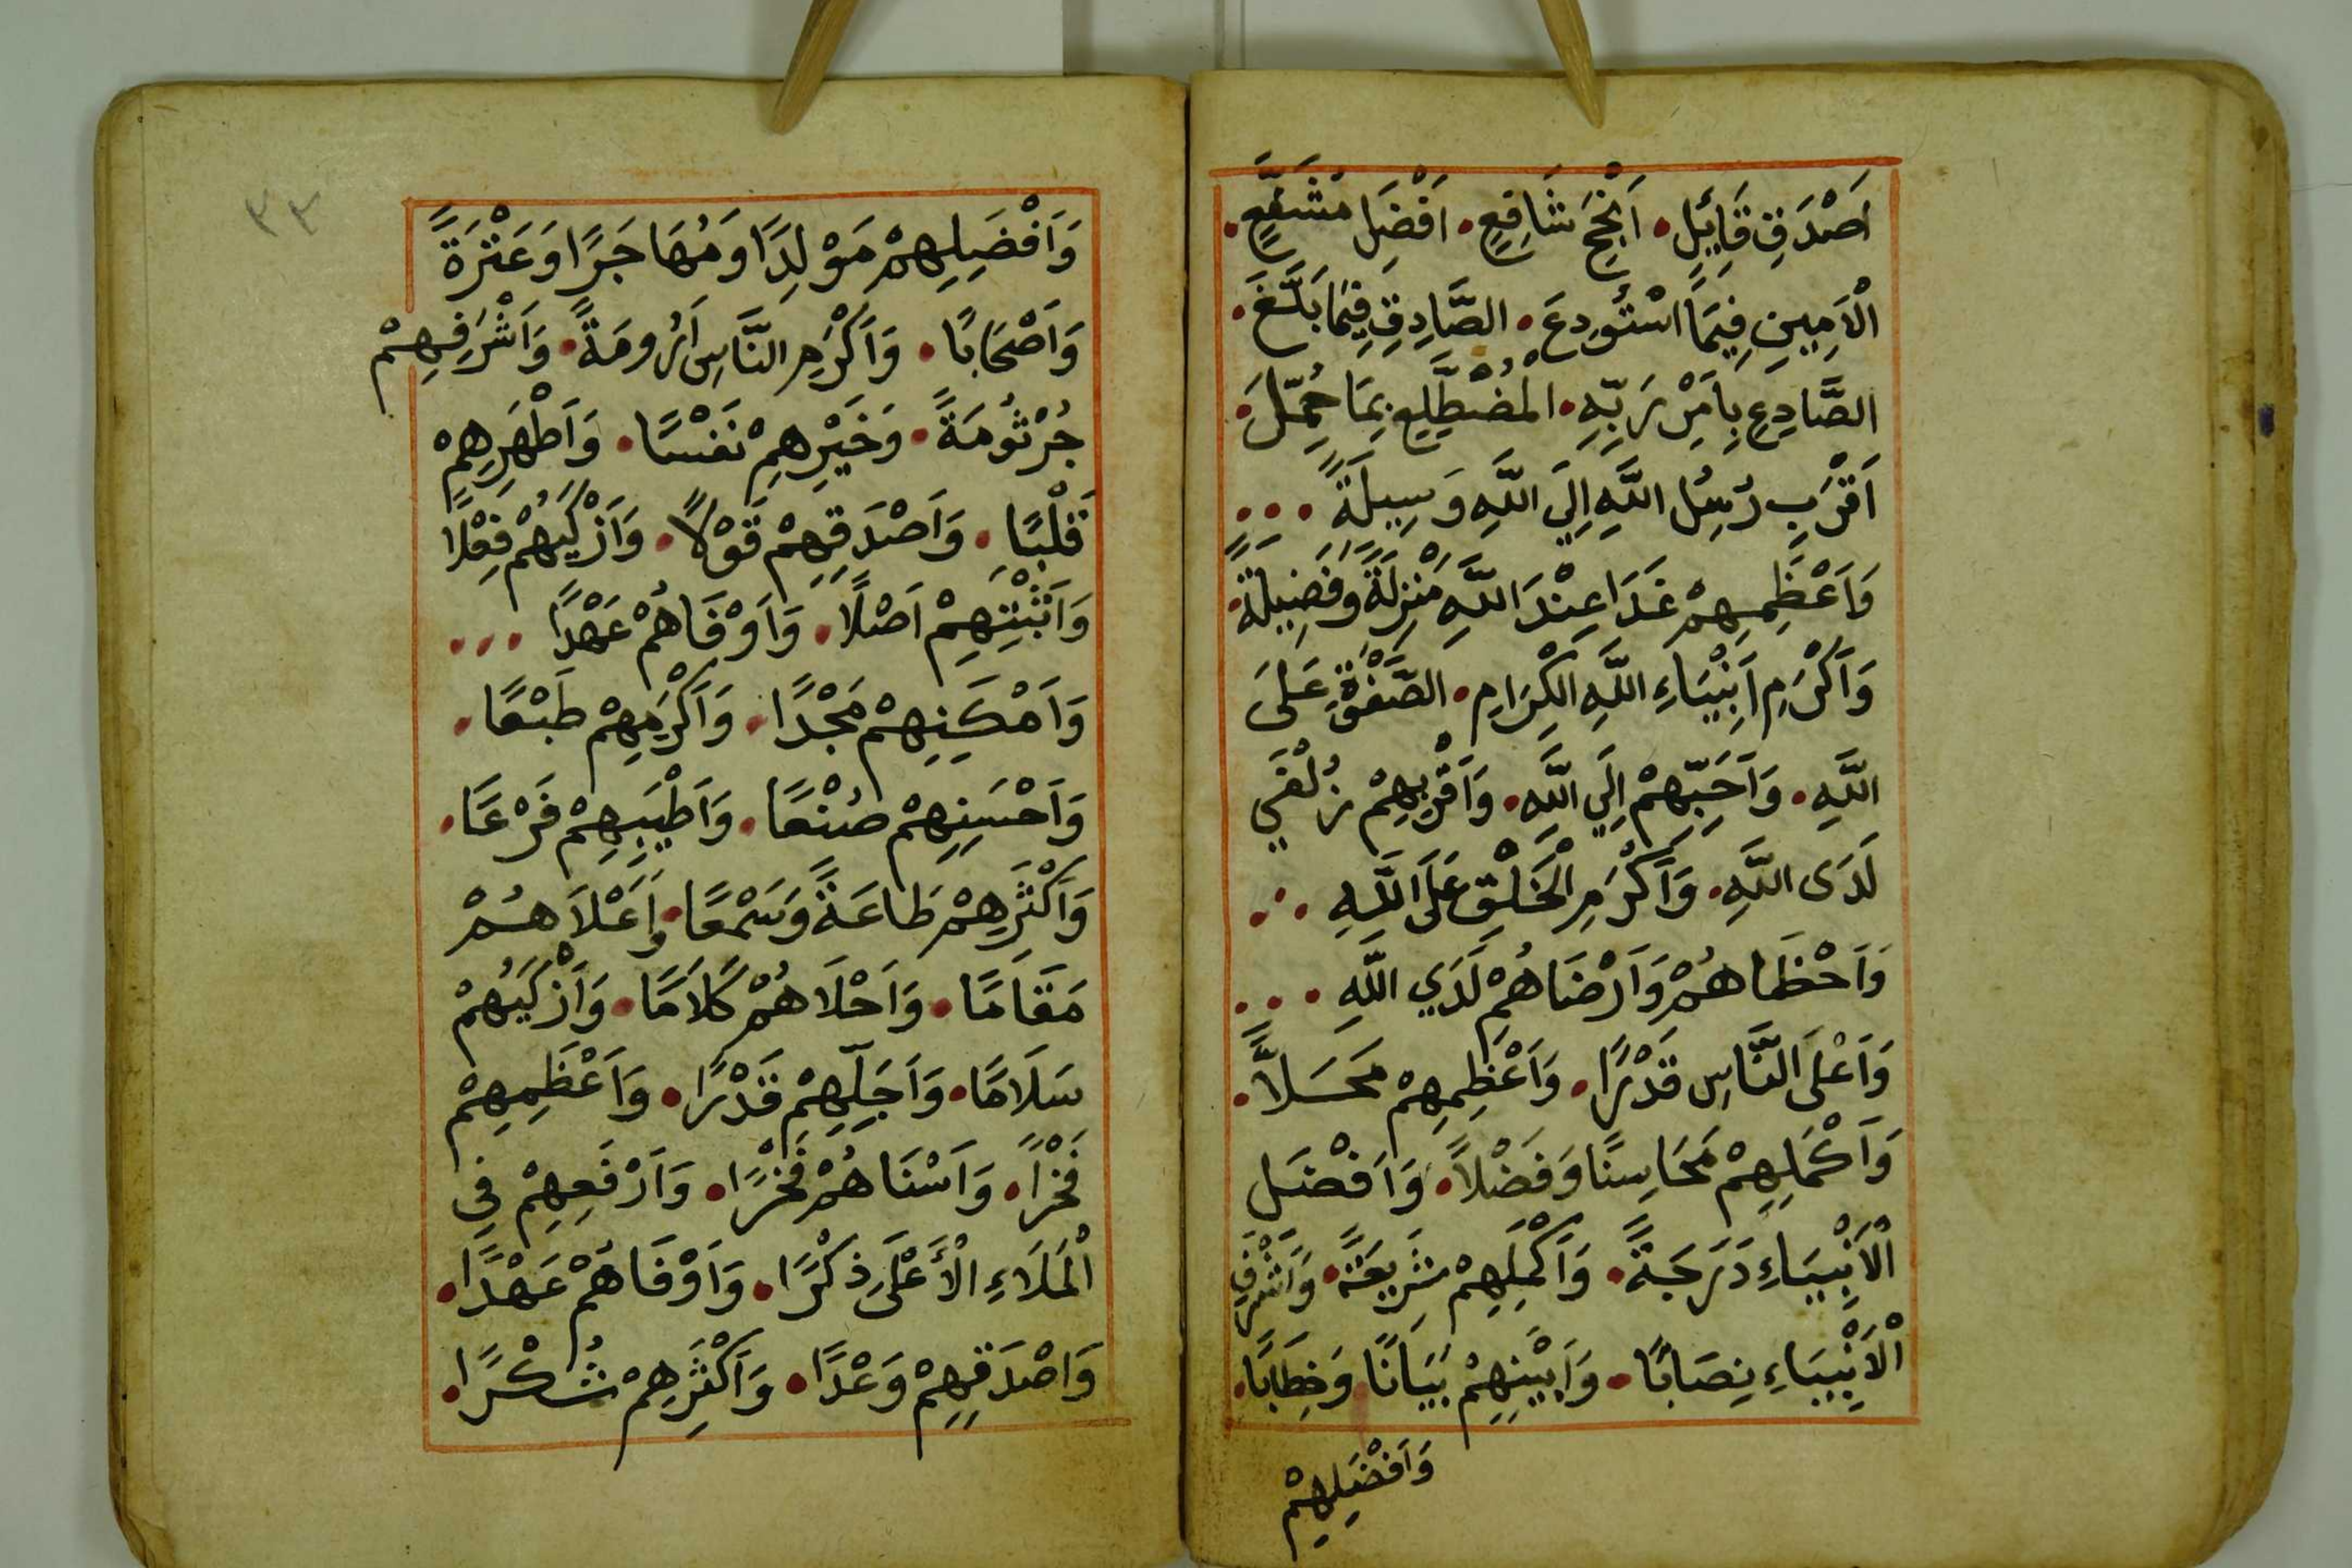 اَصْدَقِ قَائِلٍ • اَنْجَحِ شَافِعٍ • اَفْضَلِ مُشَفَّعٍ •
الْاَمِينِ فِيمَا اسْتُودِعَ • الصَّادِقِ فِيمَا بَلَّغَ •
الصَّادِعِ بِاَمْرِ رَبِّهِ • الْمُضْطَلِعِ بِمَا حُمِّلَ •
اَقْرَبِ رُسُلِ اللَّهِ اِلَى اللَّهِ وَسِيلَةً • • •
وَاَعْظَمِهِمْ غَدًا عِنْدَ اللَّهِ مَنْزِلَةً وَفَضِيلَةً •
وَاَكْرَمِ اَنْبِيَاءِ اللَّهِ الْكِرَامِ • الصَّفْوَةِ عَلَى
اللَّهِ • وَاَحَبِّهِمْ اِلَي اللَّهِ • وَاَقْرَبِهِمْ زُلْفَي
لَدَى اللَّهِ • وَاَكْرَمِ الْخَلْقِ عَلَى اللَّهِ • • •
وَاَحْظَاهُمْ وَاَرْضَاهُمْ لَدَي اللَّهِ • • •
وَاَعْلَى النَّاسِ قَدْرًا • وَاَعْظَمِهِمْ مَحَلًّا •
وَاَكْمَلِهِمْ مَحَاسِنًا وَفَضْلًا • وَاَفْضَلِ
الْاَنْبِيَاءِ دَرَجَةً • وَاَكْمَلِهِمْ شَرِيعَةً • وَاَشْرَفِ
الْاَنْبِيَاءِ نِصَابًا • وَاَبْيَنِهِمْ بَيَانًا وَخِطَابًا •
وَاَفْضَلِهِمْ
٣٣
وَاَفْضَلِهِمْ مَوْلِدًا وَمُهَاجَرًا وَعَتْرَةً
وَاَصْحَابًا • وَاَكْرَمِ النَّاسِ اَرُومَةً • وَاَشْرَفِهِمْ
جُرْثُومَةً • وَخَيْرِهِمْ نَفْسًا • وَاَطْهَرِهِمْ
قَلْبًا • وَاَصْدَقِهِمْ قَوْلًا • وَاَزْكَيهُمْ فِعْلًا
وَاَثْبَتِهِمْ اَصْلًا • وَاَوْفَاهُمْ عَهْدًا • • •
وَاَمْكَنِهِمْ مَجْدًا • وَاَكْرَمِهِمْ طَبْعًا •
وَاَحْسَنِهِمْ صُنْعًا • وَاَطْيَبِهِمْ فَرْعًا •
وَاَكْثَرِهِمْ طَاعَةً وَسَمْعًا • وَاَعْلَاهُمْ
مَقَامًا • وَاَحْلَاهُمْ كَلَامًا • وَاَزْكَيهُمْ
سَلَامًا • وَاَجَلِّهِمْ قَدْرًا • وَاَعْظَمِهِمْ
فَخْرًا • وَاَسْنَاهُمْ فَخْرًا • وَاَرْفَعِهِمْ فِي
الْمَلَاءِ الْأَعْلَى ذِكْرًا • وَاَوْفَاهُمْ عَهْدًا •
وَاَصْدَقِهِمْ وَعْدًا • وَاَكْثَرِهِمْ شُكْرًا •